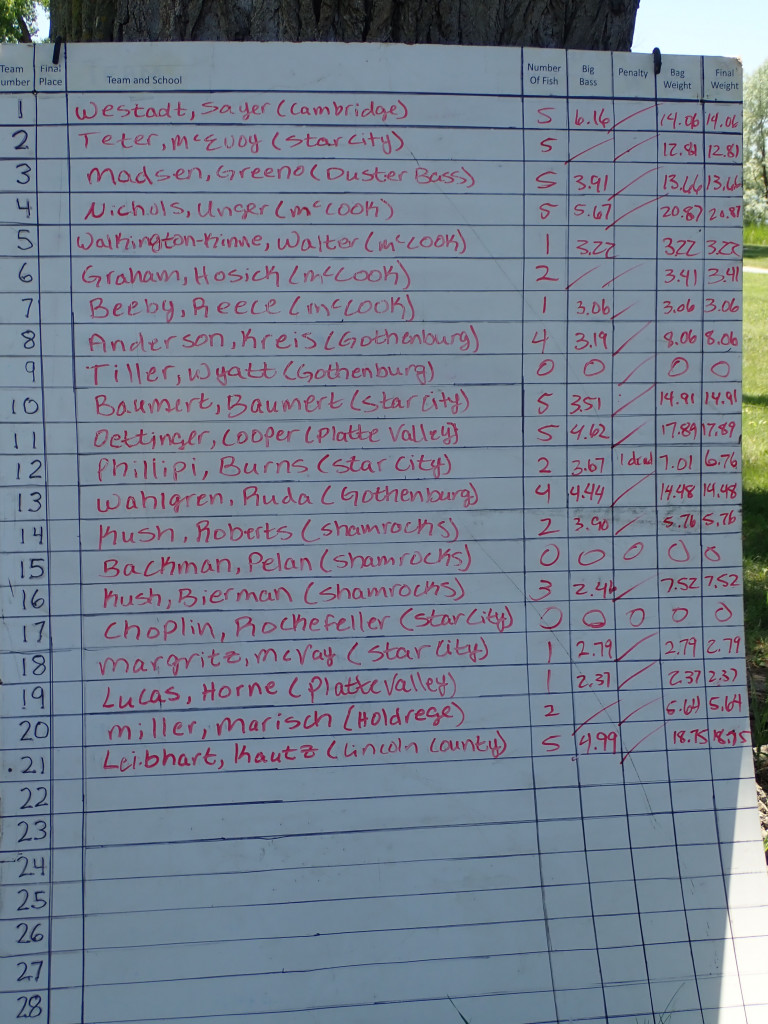 Team Number Final Place Team and School Number Of Fish Big Bass Penalty Bag Weight Final Weight
1 Westadt, Sayer (Cambridge) 5 6.16 / 14.06 14.06
2 Teter, McEvoy (Star City) 5 / / 12.81 12.81
3 Madsen, Greeno (Duster Bass) 5 3.91 / 13.66 13.66
4 Nichols, Unger (McCook) 5 5.67 / 20.87 20.87
5 Walkington-Kinne, Walter (McCook) 1 3.22 / 3.22 3.22
6 Graham, Hosick (McCook) 2 / / 3.41 3.41
7 Beeby, Reece (McCook) 1 3.06 / 3.06 3.06
8 Anderson, Kreis (Gothenburg) 4 3.19 / 8.06 8.06
9 Tiller, Wyatt (Gothenburg) 0 0 / 0 0
10 Baumert, Baumert (Star City) 5 3.51 / 14.91 14.91
11 Oettinger, Cooper (Platte Valley) 5 4.62 / 17.89 17.89
12 Phillipi, Burns (Star City) 2 3.67 1 dead 7.01 6.76
13 Wahlgren, Ruda (Gothenburg) 4 4.44 / 14.48 14.48
14 Kush, Roberts (Shamrocks) 2 3.90 / 5.76 5.76
15 Backman, Pelan (Shamrocks) 0 0 0 0 0
16 Kush, Bierman (Shamrocks) 3 2.46 / 7.52 7.52
17 Choplin, Rockefeller (Star City) 0 0 0 0 0
18 Margritz, McVay (Star City) 1 2.79 / 2.79 2.79
19 Lucas, Horne (Platte Valley) 1 2.37 / 2.37 2.37
20 Miller, Marisch (Holdrege) 2 / / 5.64 5.64
21 Leibhart, Kautz (Lincoln County) 5 4.99 / 18.75 18.75
22
23
24
25
26
27
28